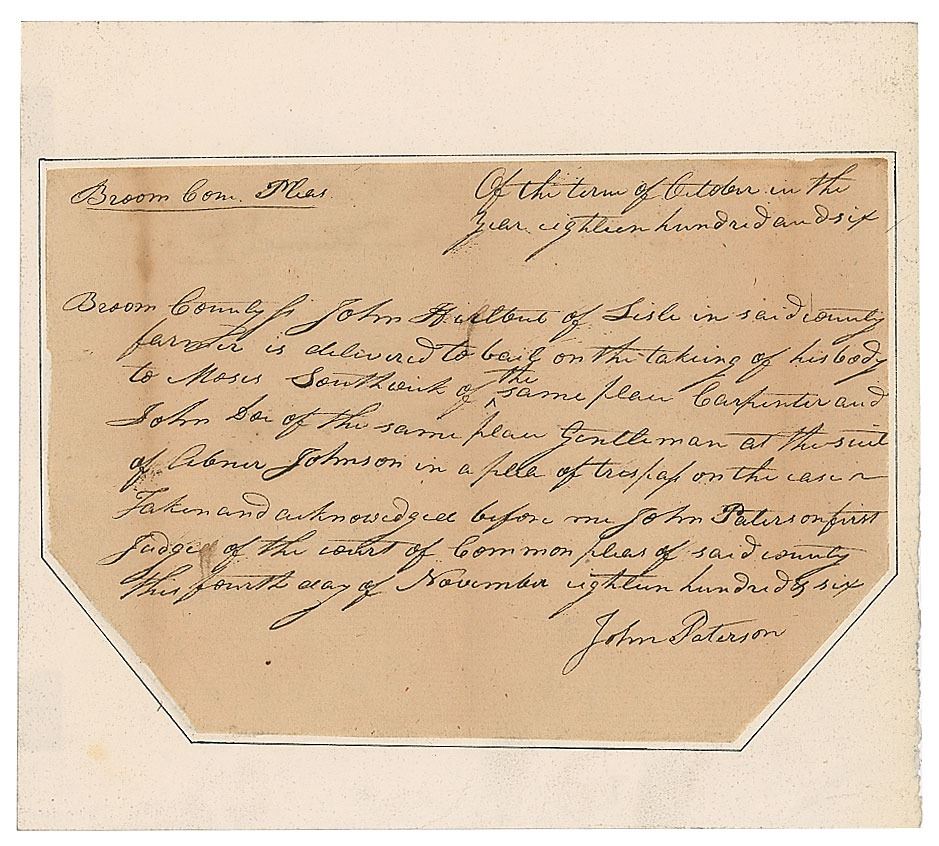 Broom Com. Pleas.
Of the term of October in the
Year eighteen hundred and six
Broom County ss John Hurlbut of Lisle in said county
farmer is delivered to bail on the taking of his body
to Moses Southwick of the same place Carpenter and
John Doe of the same place Gentleman at the suit
of Abner Johnson in a plea of trespass on the case
Taken and acknowledged before me John Paterson first
Judge of the court of Common pleas of said county
this fourth day of November eighteen hundred & six
John Paterson